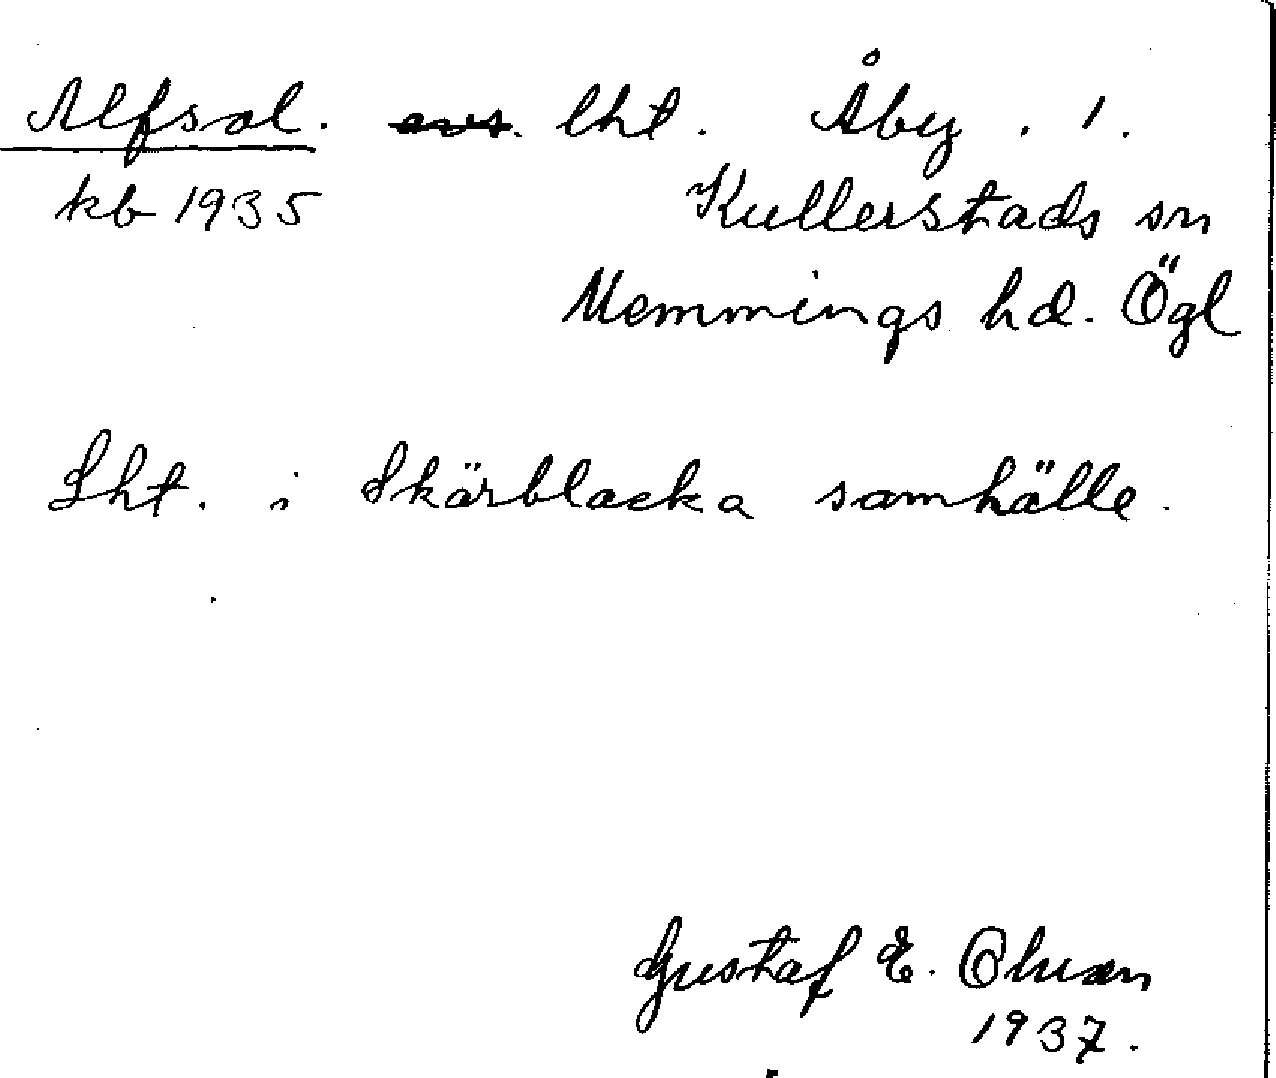 Alfsol. avs. lht. Åby . 1.
kb 1935 Kullerstads sn
Memmings hd. Ögl
Lht. i Skärblacka samhälle.
Gustaf E.
1937.